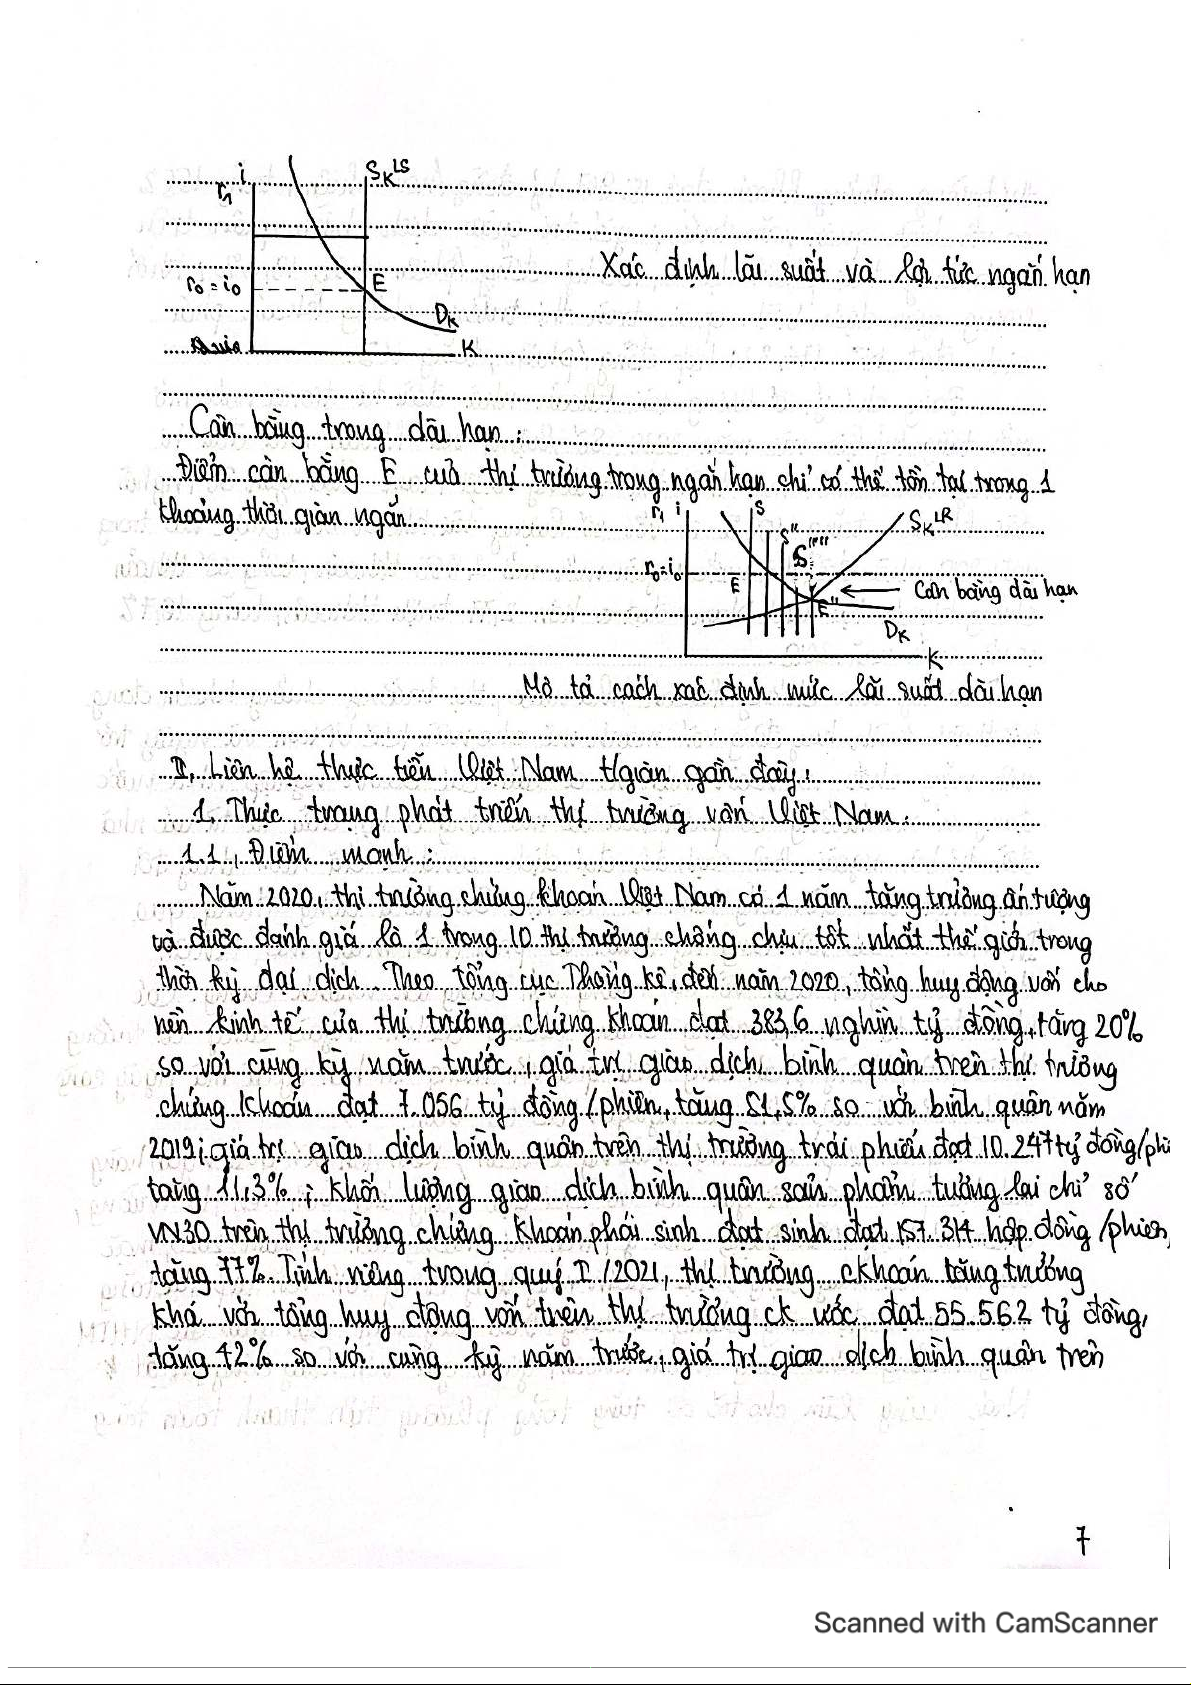 i
r₁
S_K^LS
Xác định lãi suất và lợi tức ngắn hạn
r₀ = i₀
E
D_K
K
Cân bằng trong dài hạn :
Điểm cân bằng E của thị trường trong ngắn hạn chỉ có thể tồn tại trong 1
khoảng thời gian ngắn
r₁ i
S
S"
S""'
S_K^LR
r₀=i₀
E
E"
Cân bằng dài hạn
D_K
K
Mô tả cách xác định mức lãi suất dài hạn
II, Liên hệ thực tiễn Việt Nam t/gian gần đây:
1, Thực trạng phát triển thị trường vốn Việt Nam.
1.1, Điểm mạnh :
Năm 2020, thị trường chứng khoán Việt Nam có 1 năm tăng trưởng ấn tượng
và được đánh giá là 1 trong 10 thị trường chống chịu tốt nhất thế giới trong
thời kỳ đại dịch. Theo tổng cục Thống kê, đến năm 2020, tổng huy động vốn cho
nền kinh tế của thị trường chứng khoán đạt 383,6 nghìn tỷ đồng, tăng 20%
so với cùng kỳ năm trước, giá trị giao dịch bình quân trên thị trường
chứng khoán đạt 7.056 tỷ đồng/phiên, tăng 51,5% so với bình quân năm
2019; giá trị giao dịch bình quân trên thị trường trái phiếu đạt 10.247 tỷ đồng/phi
tăng 11,3% ; khối lượng giao dịch bình quân sản phẩm tương lai chỉ số
VN30 trên thị trường chứng khoán phái sinh đạt sinh đạt 157.314 hợp đồng /phiên,
tăng 77%. Tính riêng trong quý I /2021, thị trường ckhoán tăng trưởng
khá với tổng huy động vốn trên thị trường ck ước đạt 55.562 tỷ đồng,
tăng 42% so với cùng kỳ năm trước, giá trị giao dịch bình quân trên
7
Scanned with CamScanner